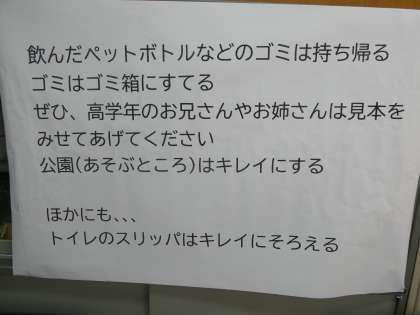 飲んだペットボトルなどのゴミは持ち帰る
ゴミはゴミ箱にすてる
ぜひ、高学年のお兄さんやお姉さんは見本を
みせてあげてください
公園(あそぶところ)はキレイにする
ほかにも、、、
トイレのスリッパはキレイにそろえる